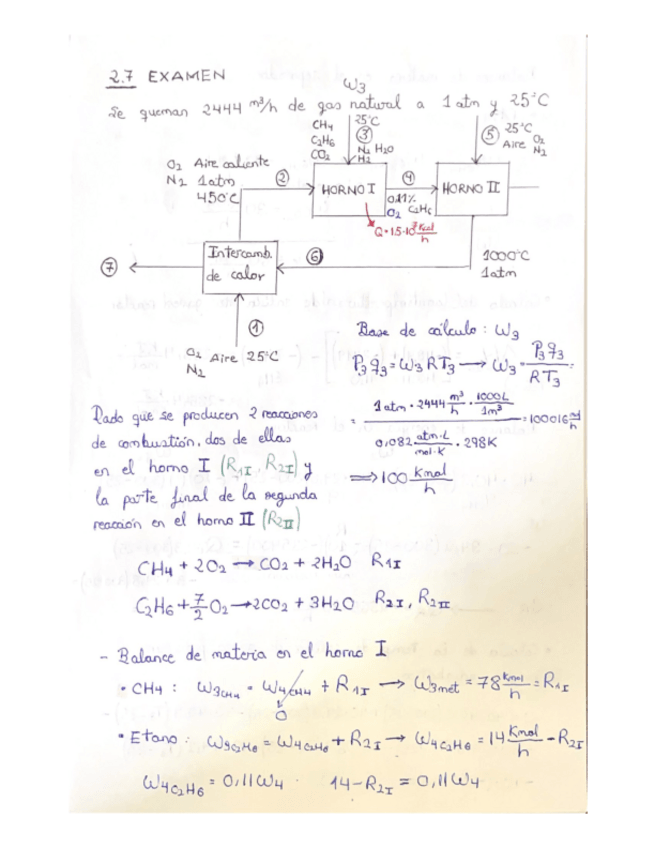 2.7 EXAMEN
W3
Se queman 2444 m³/h de gas natural a 1 atm y 25°C
CH4
C2H6
CO2
25°C
③
N2 H2O
H2
⑤ 25°C
Aire O2
N2
O2 Aire caliente
N2 1atm
450°C
②
HORNO I
④
O2 C2H6
HORNO II
Q = 1.5·10⁷ Kcal/h
⑦
Intercamb.
de calor
⑥
1000°C
1atm
①
O2 Aire 25°C
N2
Base de cálculo: W3
P3 q3 = W3 R T3 → W3 = P3 q3 / R T3 =
= 1 atm · 2444 m³/h · 1000L/1m³ / 0,082 atm·L/mol·K · 298K = 100016 mol/h
⟹ 100 Kmol/h
Dado que se producen 2 reacciones
de combustión, dos de ellas
en el horno I (R1I, R2I) y
la parte final de la segunda
reacción en el horno II (R2II)
CH4 + 2O2 → CO2 + 2H2O R1I
C2H6 + 7/2 O2 → 2CO2 + 3H2O R2I, R2II
- Balance de materia en el horno I
• CH4: W3CH4 = W4CH4 + R1I → W3met = 78 Kmol/h = R1I
0
• Etano: W3C2H6 = W4C2H6 + R2I → W4C2H6 = 14 Kmol/h - R2I
W4C2H6 = 0,11W4 14 - R2I = 0,11W4